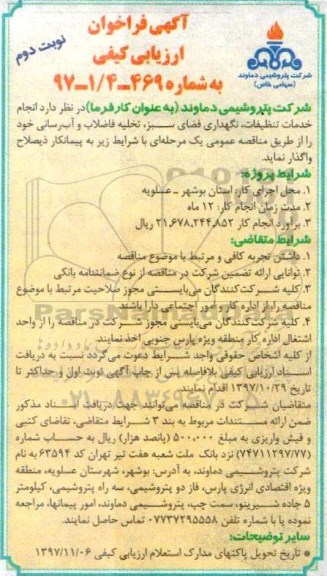 آگهی فراخوان
ارزیابی کیفی
به شماره ۴۶۹-۱/۴-۹۷
نوبت دوم
شرکت پتروشیمی دماوند
(سهامی خاص)
شرکت پتروشیمی دماوند (به عنوان کارفرما) در نظر دارد انجام
خدمات تنظیفات، نگهداری فضای سبز، تخلیه فاضلاب و آب‌رسانی خود
را از طریق مناقصه عمومی یک مرحله‌ای با شرایط زیر به پیمانکار ذیصلاح
واگذار نماید.
شرایط پروژه:
۱. محل اجرای کار: استان بوشهر ـ عسلویه
۲. مدت زمان انجام کار: ۱۲ ماه
۳. برآورد انجام کار ۲۱,۶۷۸,۲۴۴,۸۵۲ ریال
شرایط متقاضی:
۱. داشتن تجربه کافی و مرتبط با موضوع مناقصه
۲. توانایی ارائه تضمین شرکت در مناقصه از نوع ضمانتنامه بانکی
۳. کلیه شرکت‌کنندگان می‌بایستی مجوز صلاحیت مرتبط با موضوع
مناقصه را از اداره کار و امور اجتماعی دارا باشند.
۴. کلیه شرکت‌کنندگان می‌بایستی مجوز شرکت در مناقصه را از واحد
اشتغال اداره کار منطقه ویژه پارس جنوبی اخذ نمایند.
از کلیه اشخاص حقوقی واجد شرایط دعوت می‌گردد نسبت به دریافت
اسناد ارزیابی کیفی بلافاصله پس از چاپ آگهی نوبت اول و حداکثر تا
تاریخ ۱۳۹۷/۱۰/۲۹ اقدام نمایند.
متقاضیان شرکت در مناقصه می‌توانند جهت دریافت اسناد مذکور
ضمن ارائه مستندات مربوط به بند ۳ شرایط متقاضی، تقاضای کتبی
و فیش واریزی به مبلغ ۵۰۰,۰۰۰ (پانصد هزار) ریال به حساب شماره
(۷۴۷۱۱۲۹۷/۷۷) نزد بانک ملت شعبه هفت تیر تهران کد ۶۳۵۹۴ به نام
شرکت پتروشیمی دماوند، به آدرس: بوشهر، شهرستان عسلویه، منطقه
ویژه اقتصادی انرژی پارس، فاز دو پتروشیمی، سه راه پتروشیمی، کیلومتر
۵ جاده شیرینو، سمت چپ، پتروشیمی دماوند، امور پیمانها، مراجعه
نموده یا با شماره تلفن ۰۷۷۳۷۲۹۵۵۵۸ تماس حاصل نمایند.
سایر توضیحات:
تاریخ تحویل پاکتهای مدارک استعلام ارزیابی کیفی ۱۳۹۷/۱۱/۰۶